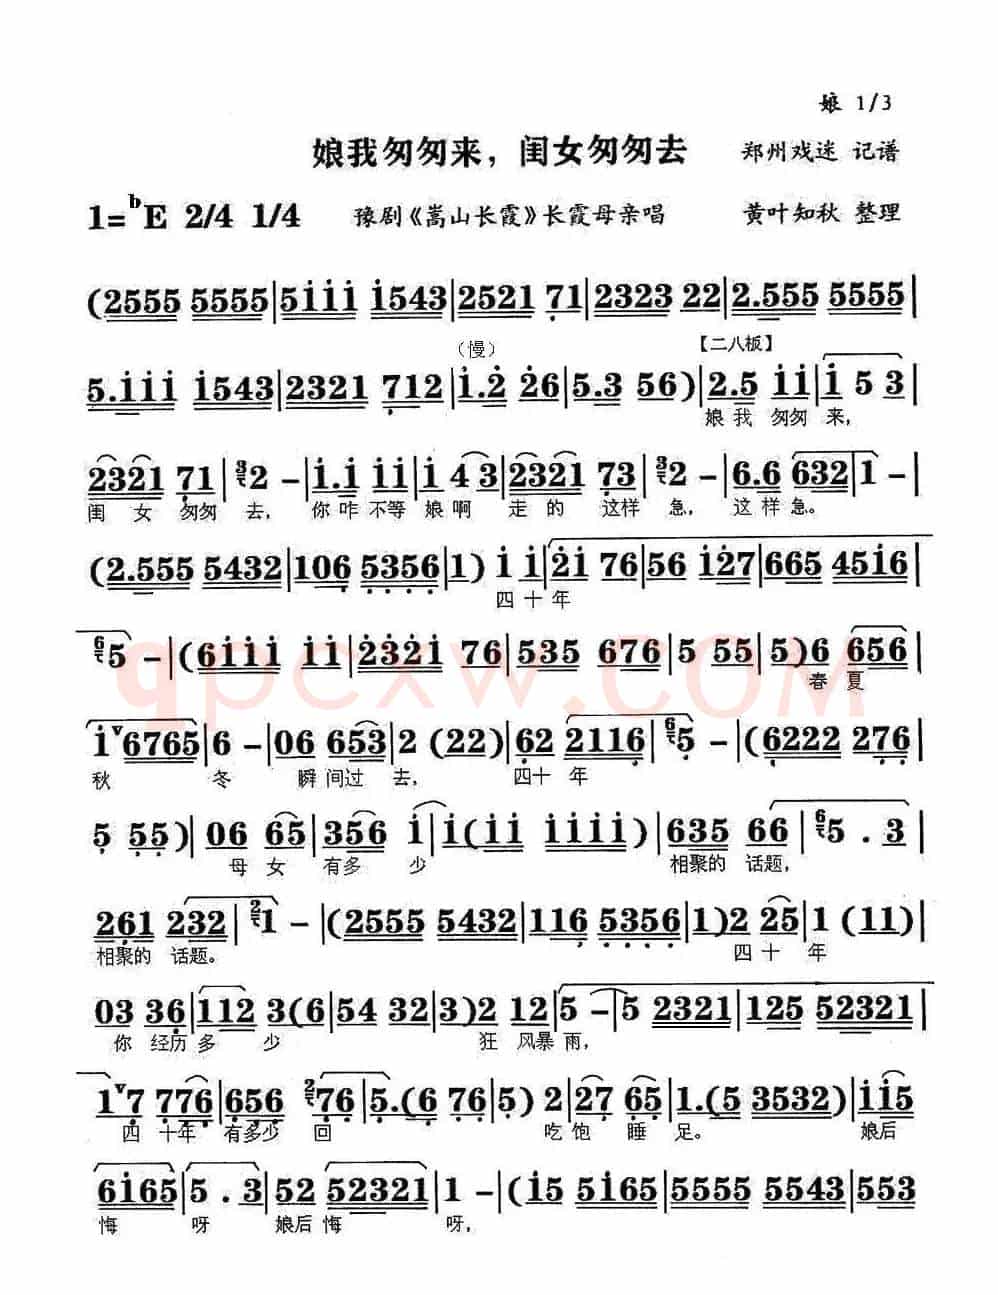 娘 1/3
娘我匆匆来，闺女匆匆去 郑州戏迷 记谱
1=bE 2/4 1/4 豫剧《嵩山长霞》长霞母亲唱 黄叶知秋 整理
(2555 5555|5iii i543|2521 71|2323 22|2.555 5555|
（慢） 【二八板】
5.iii i543|2321 712|i.2 26|5.3 56)|2.5 ii|i 5 3|
娘 我 匆匆 来，
2321 71|2 -|i.i ii|i 4 3|2321 73|2 -|6.6 632|1 -|
闺 女 匆匆 去， 你 咋 不等 娘 啊 走 的 这样 急， 这 样 急。
(2.555 5432|106 5356|1) i i|2i 76|56 i27|665 45i6|
四 十 年
5 -|(6iii ii|232i 76|535 676|5 55|5) 6 656|
春 夏
i 6765|6 -|06 653|2 (22)|62 2116|5 -|(6222 276|
秋 冬 瞬 间过 去， 四十 年
5 55)|06 65|356 i|i(ii iiii)|635 66|5 . 3|
母 女 有多 少 相聚的 话题，
261 232|1 -|(2555 5432|116 5356|1) 2 25|1 (11)|
相聚的 话题。 四 十 年
03 36|112 3(6|54 32|3) 2 12|5 -|5 2321|125 52321|
你 经历 多 少 狂 风暴 雨，
1 7 776|656 76|5.(6 76|5) 2 27 65|1.(5 3532)|ii5
四 十年 有多少 回 吃 饱 睡 足。 娘后
6i65|5 . 3|52 52321|1 -|(i5 5i65|5555 5543|553
悔 呀 娘后 悔 呀，
qpcxw.COM